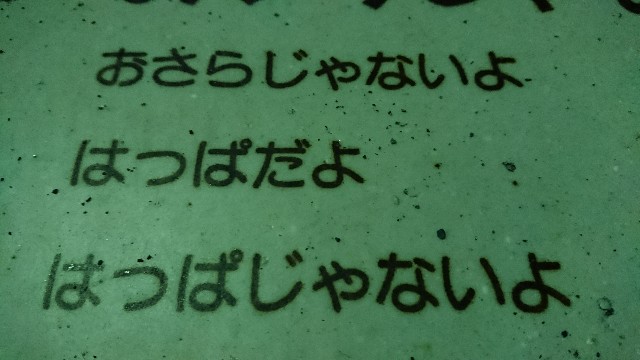 おさらじゃないよ
はっぱだよ
はっぱじゃないよ